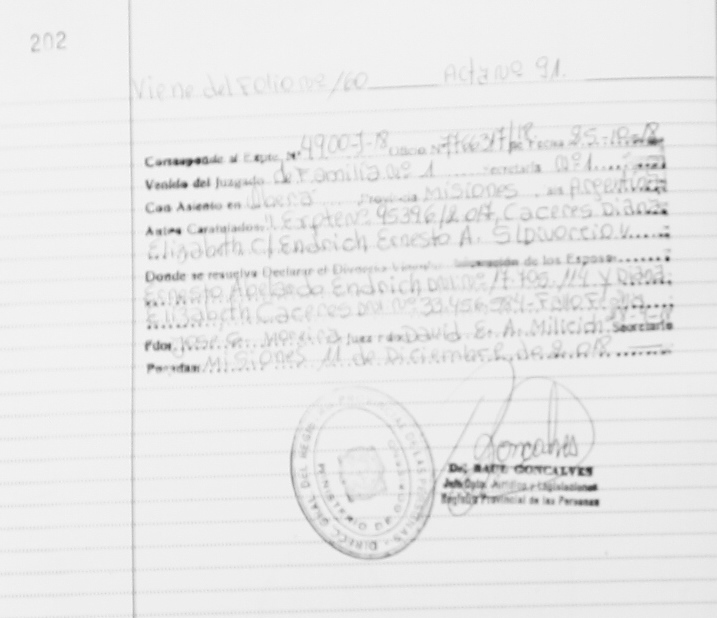 202
Viene del Folio Nº 160 Acta Nº 91.
Corresponde al Expte. Nº 4900-J-18 Oficio Nº 7766317/18 de Fecha 25-10-18
Venido del Juzgado de Familia Nº 1 Secretaría Nº 1
Con Asiento en Oberá Provincia Misiones Argentina
Autos Caratulados: "Expte Nº 95396/2017, Caceres Diana
Elizabeth C/ Endrich Ernesto A. S/ Divorcio
Donde se resuelve Declarar el Divorcio Vincular de los Esposos
Ernesto Endrich DNI Nº y Diana
Elizabeth Caceres DNI Nº 33.456.984- Fallo
Fdor. Jose G. Moreira Juez Fdo David E. A. Milicich Secretario
Posadas Misiones 11 de Diciembre de 2.018
Goncalves
Dr. RAUL GONCALVES
Jefe Dpto. Jurídico y Legislaciones
Registro Provincial de las Personas